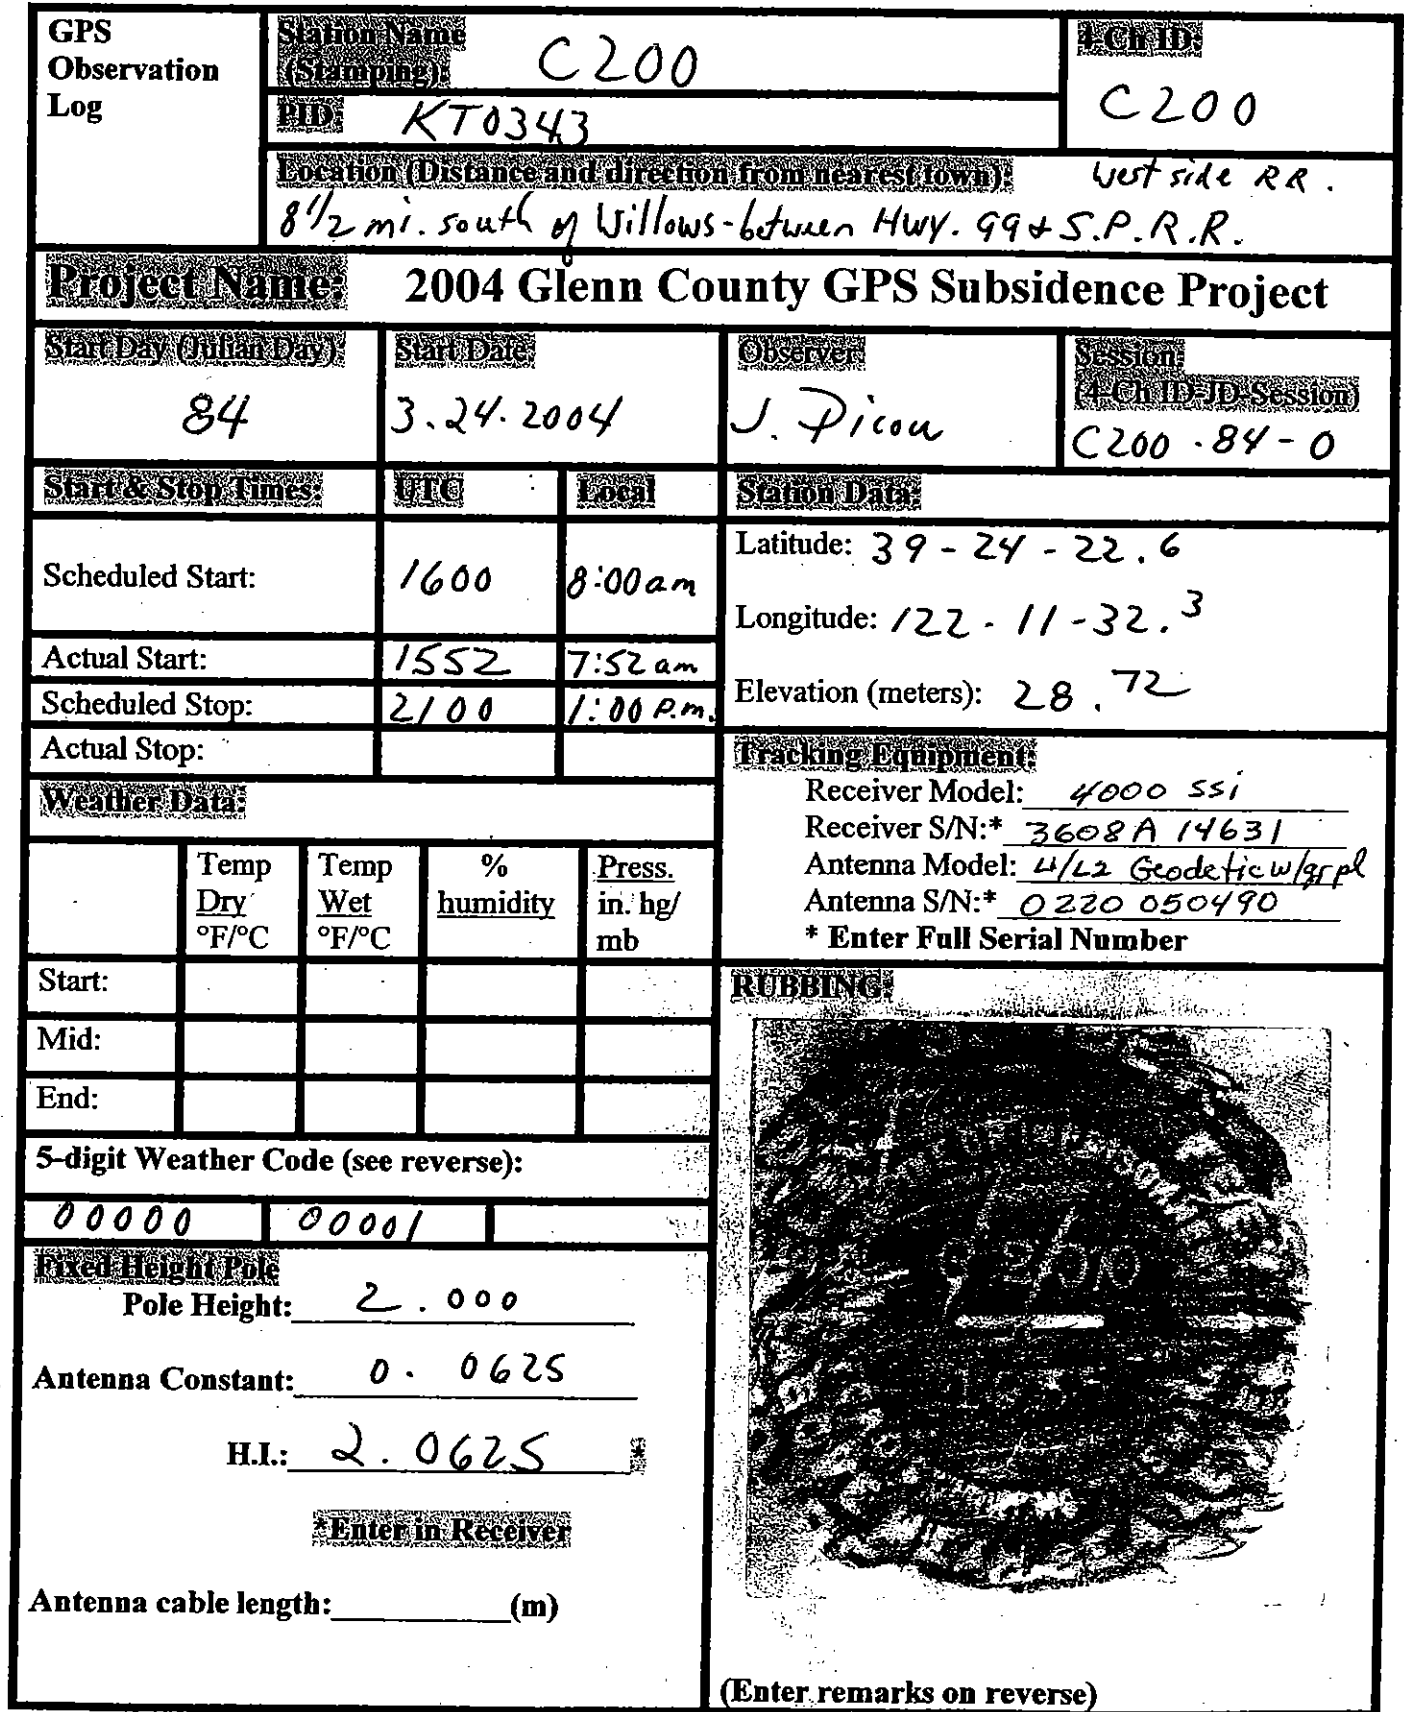 GPS
Observation
Log
Station Name
(Stamping): C200
4-Ch ID:
C200
PID: KT0343
Location (Distance and direction from nearest town): West side RR.
8 1/2 mi. south of Willows - between Hwy. 99 & S.P.R.R.
Project Name: 2004 Glenn County GPS Subsidence Project
Start Day (Julian Day)
84
Start Date:
3.24.2004
Observer
J. Picou
Session:
(4-Ch ID-JD-Session)
C200 - 84 - 0
Start & Stop Times: UTC Local
Scheduled Start: 1600 8:00am
Actual Start: 1552 7:52 am
Scheduled Stop: 2100 1:00 P.m.
Actual Stop:
Station Data:
Latitude: 39 - 24 - 22.6
Longitude: 122 - 11 - 32.3
Elevation (meters): 28.72
Tracking Equipment:
Receiver Model: 4000 ssi
Receiver S/N:* 3608A 14631
Antenna Model: L1/L2 Geodetic w/grpl
Antenna S/N:* 0220 050490
* Enter Full Serial Number
Weather Data:
Temp Dry °F/°C
Temp Wet °F/°C
% humidity
Press. in. hg/ mb
Start:
Mid:
End:
5-digit Weather Code (see reverse):
00000 00001
Fixed Height Pole
Pole Height: 2.000
Antenna Constant: 0.0625
H.I.: 2.0625 *
*Enter in Receiver
Antenna cable length: (m)
RUBBING:
C 200
(Enter remarks on reverse)